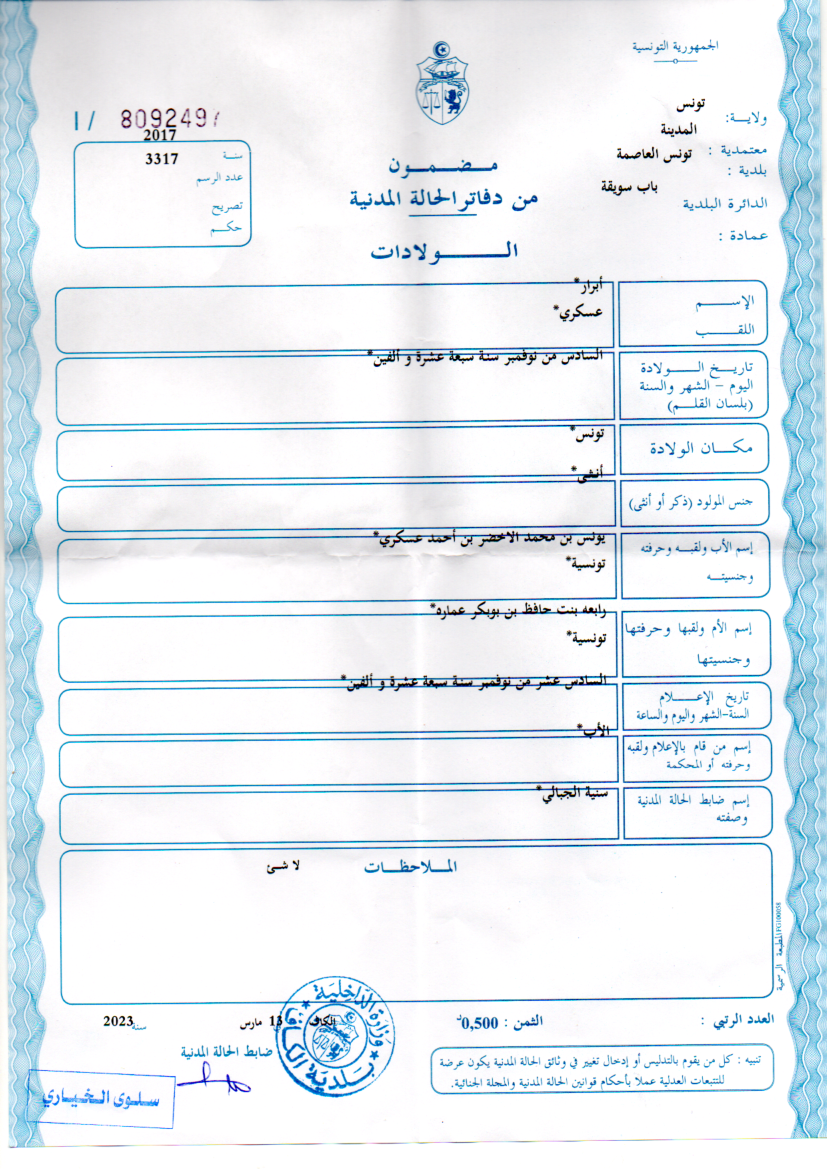 الجمهورية التونسية
ولايـــة: تونس
معتمدية : المدينة
بلدية : تونس العاصمة
الدائرة البلدية باب سويقة
عمادة :
I / 809249/
سنة 2017
عدد الرسم 3317
تصريح
حكم
مضمون
من دفاتر الحالة المدنية
الولادات
الإسم أبرار*
اللقب عسكري*
تاريخ الولادة السادس من نوفمبر سنة سبعة عشرة و ألفين*
اليوم – الشهر والسنة
(بلسان القلم)
مكان الولادة تونس*
جنس المولود (ذكر أو أنثى) أنثى*
إسم الأب ولقبه وحرفته يونس بن محمد الاخضر بن أحمد عسكري*
وجنسيته تونسية*
إسم الأم ولقبها وحرفتها رابعه بنت حافظ بن بوبكر عماره*
وجنسيتها تونسية*
تاريخ الإعلام السادس عشر من نوفمبر سنة سبعة عشرة و ألفين*
السنة-الشهر واليوم والساعة
إسم من قام بالإعلام ولقبه الأب*
وحرفته أو المحكمة
إسم ضابط الحالة المدنية سنية الجبالي*
وصفته
الملاحظات
لا شئ
المطبعة الرسمية FG100058
العدد الرتبي :
الثمن : 0,500د
الكاف 13 مارس سنة 2023
ضابط الحالة المدنية
وزارة الداخلية
بلدية الكاف
سلوى الخياري
تنبيه : كل من يقوم بالتدليس أو إدخال تغيير في وثائق الحالة المدنية يكون عرضة
للتتبعات العدلية عملا بأحكام قوانين الحالة المدنية والمجلة الجنائية.